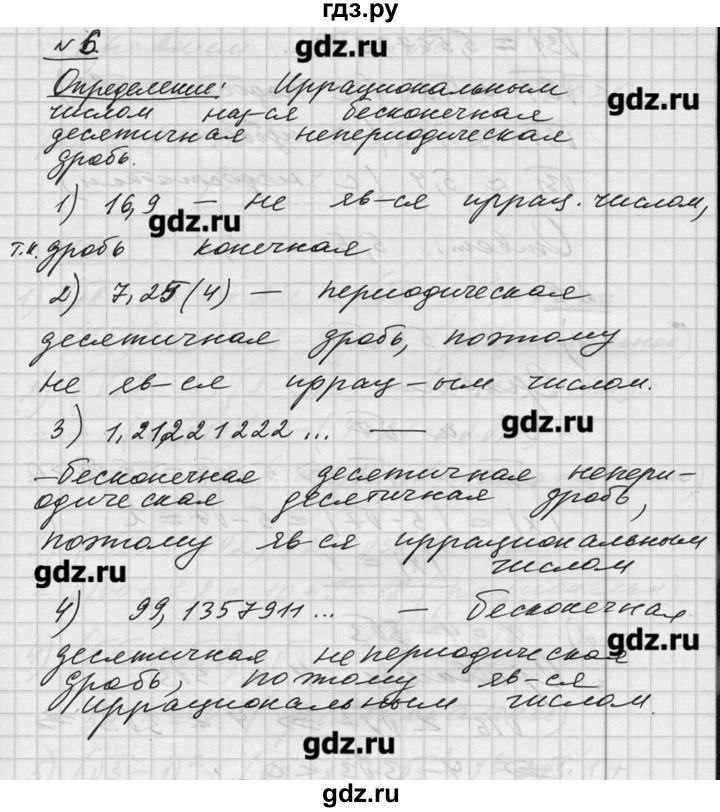 гдз.ру
№ 6 gdz.ru
Определение: Иррациональным
числом наз-ся бесконечная gdz.ru
десятичная непериодическая
дробь.
1) 16,9 – не яв-ся иррац. числом,
gdz.ru
т.к. дробь конечная
2) 7,25(4) — периодическая
десятичная дробь, поэтому
не яв-ся иррац-ым числом.
3) 1,21221222... — gdz.ru
-бесконечная десятичная непери-
одическая десятичная дробь,
поэтому яв-ся иррациональным
gdz.ru числом
4) 99,1357911... — бесконечная
gdz.ru
десятичная непериодическая
дробь, поэтому яв-ся
иррациональным числом.
gdz.ru
gdz.ru